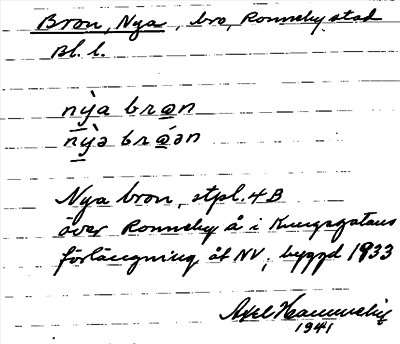 Bron, Nya, bro, Ronneby stad
Bl. l.
nỳa bron
nỳə broən
Nya bron, stpl. 4B
över Ronneby å i Kungsgatans
förlängning åt NV, byggd 1933
Axel
1941